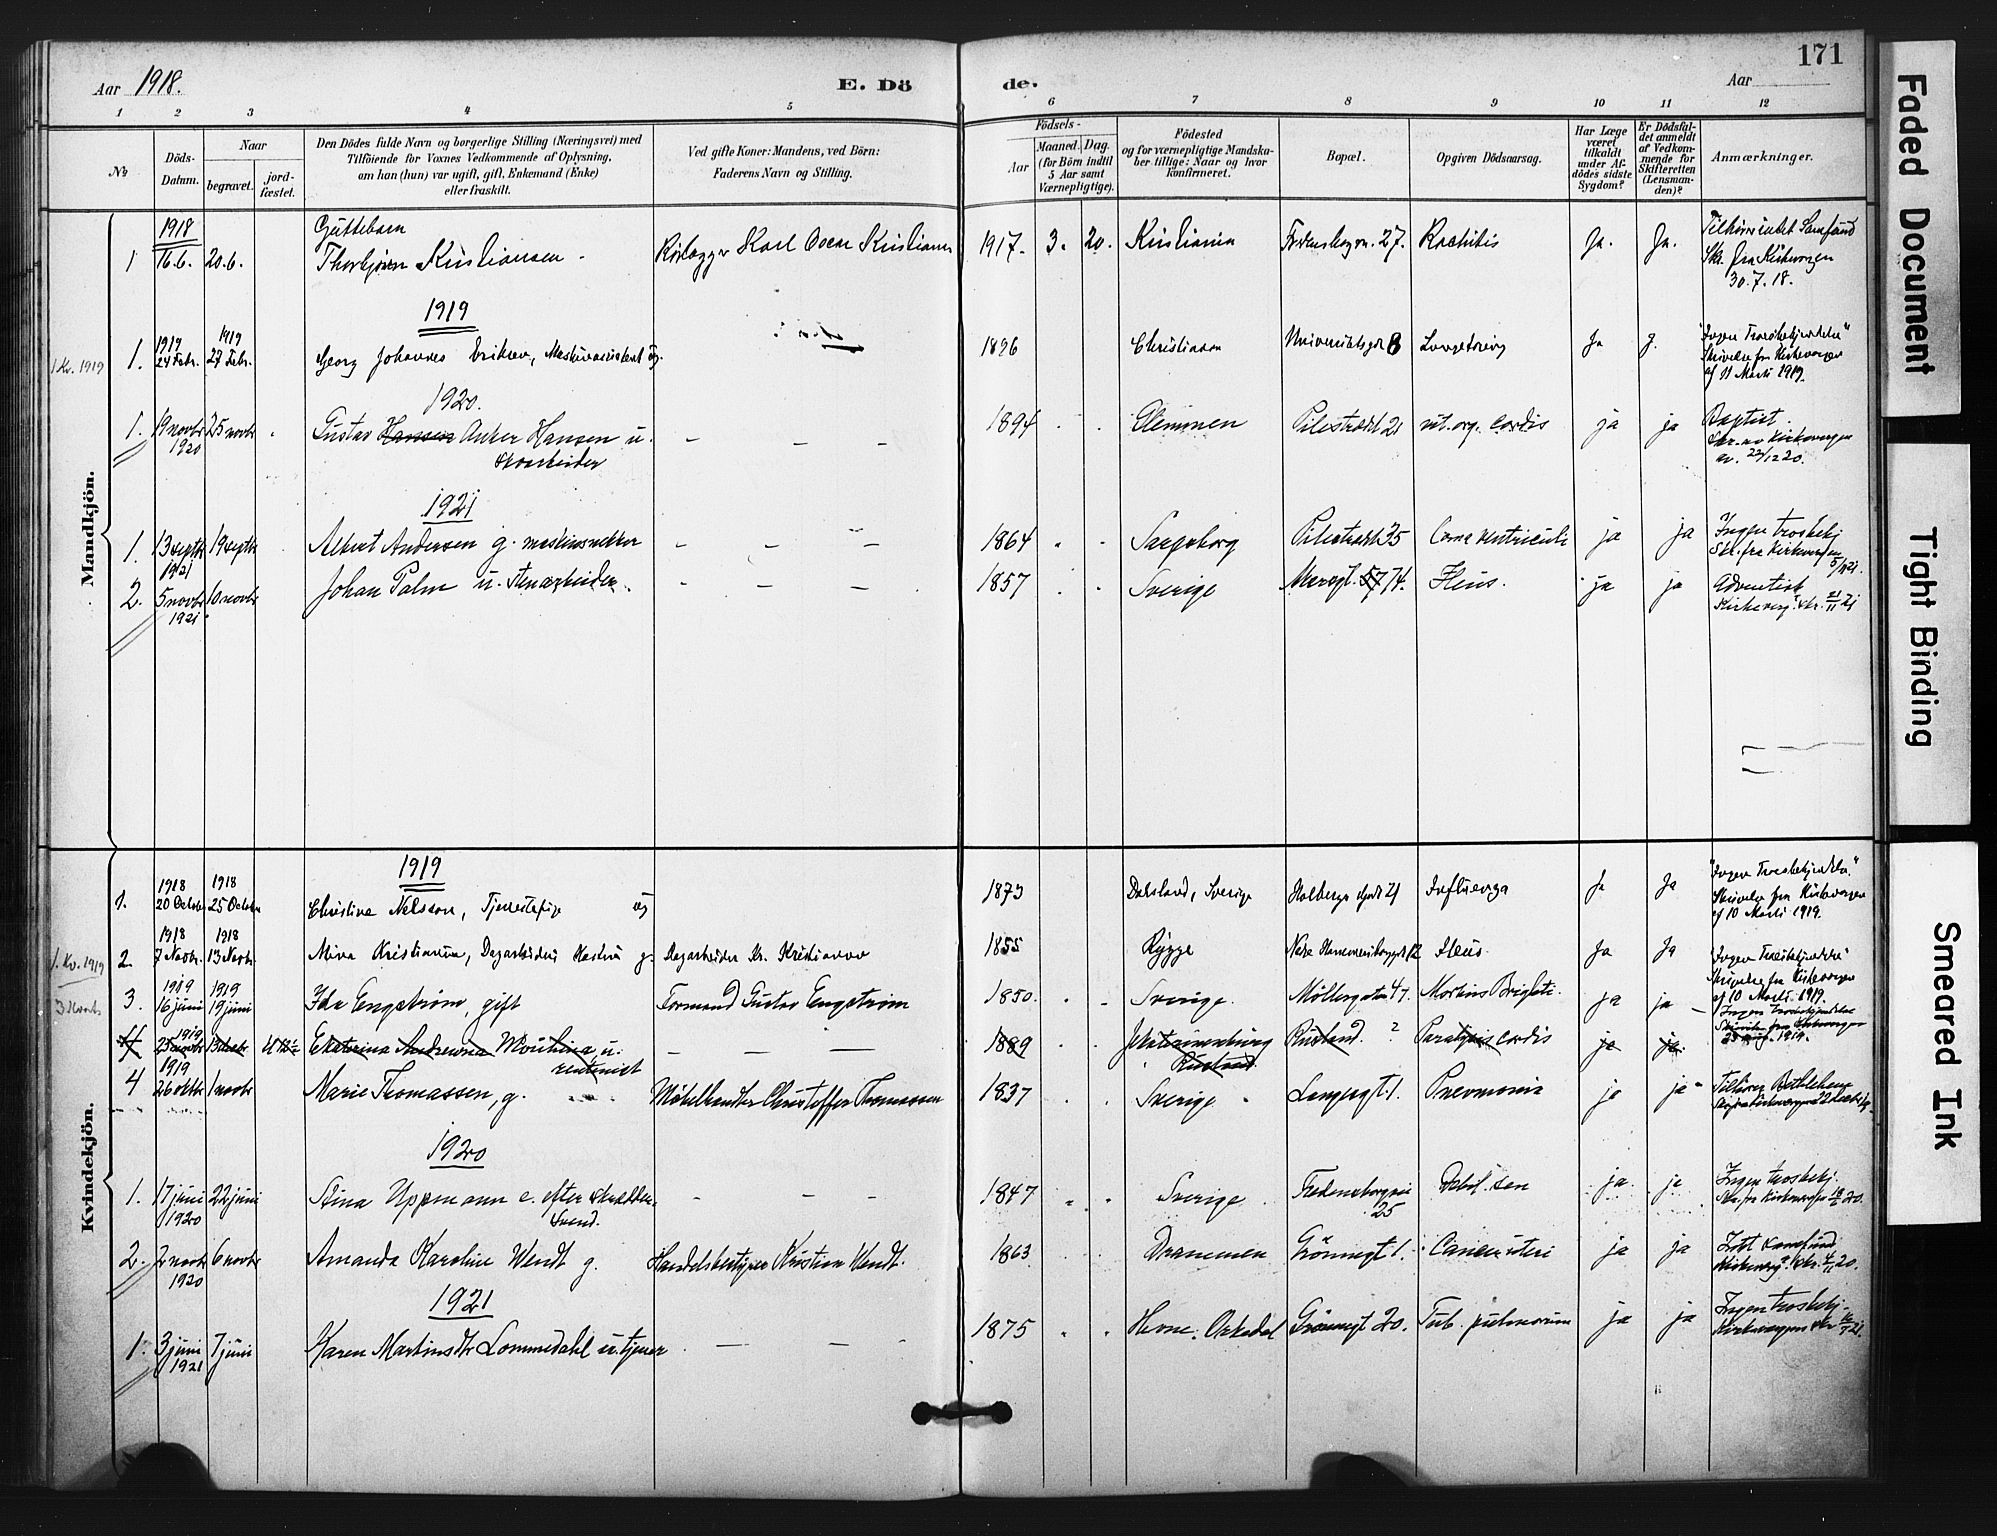 Aar 1918.
E. Dö
de.
171
Aar
1 2 3 4 5 6 7 8 9 10 11 12
No
Döds-Datum.
Naar
begravet.
jord-fæstet.
Den Dödes fulde Navn og borgerlige Stilling (Næringsvei) med
Tilföiende for Voxnes Vedkommende af Oplysning,
om han (hun) var ugift, gift, Enkemand (Enke)
eller fraskilt.
Ved gifte Koner: Mandens, ved Börn:
Faderens Navn og Stilling.
Födsels-
Aar
Maaned. Dag.
(for Börn indtil
5 Aar samt
Værnepligtige).
Födested
og for værnepligtige Mandska-
ber tillige: Naar og hvor
konfirmeret.
Bopæl.
Opgiven Dödsaarsag.
Har Læge
været
tilkaldt
under Af-
dödes sidste
Sygdom?
Er Dödsfal-
det anmeldt
af Vedkom-
mende for
Skifteretten
(Lensman-
den)?
Anmærkninger.
Mandkjön.
1918
Guttebarn
1 16.6. 20.6. Thorbjörn Kristiansen Rörlægger Karl Oscar Kristiansen 1917. 3. 20. Kristiania Fredensborgvn. 27. Rachitis Ja. Ja.
Skr. fra Kirkevergen
30.7.18.
1919
1 Kv. 1919
1. 1919 24 Febr. 1919 27 Febr. Georg Johannes Eriksen, Maskinassistent ug. 1896 Christiania Universitetsgd 8 Ja J. "Ingen Troesbekjendelse"
Skrivelse fra Kirkevergen
af 11 Marts 1919.
1920.
1. 19 novbr 1920 25 novbr Gustav Hansen Anker Hansen u. - - - 1894 Glemmen Pilestrædet 21 vit. org. cordis ja ja Baptist.
Skr. av Kirkevergen
av. 22/12 20.
1921
1. 13 septbr 1921 19 septbr Albert Andersen g. - - - 1864 Sarpsborg Pilestrædet 35 ja ja Ingen trosbekj.
Skr. fra Kirkevergen
2. 5 novbr 1921 10 novbr Johan Palm u. Stenarbeider. - - - 1857 Sverige 57 74. Ileus. ja ja Adventist
Kirkeverg. skr. 21/11 21
Kvindekjön.
1919
1. 1918 20 Octobr 1918 25 Octobr Christine Nelsson, Tjenestepige ug 1873 Dalsland, Sverige Holbergs 21 Influenza Ja Ja "Ingen Troesbekjendelse."
Skrivelse fra Kirkevergen
af 10 Marts 1919.
1. Kv. 1919
2 1918 7 Novbr. 1918 13 Novbr. Mina Kristiansen, Dagarbeiders Hustru g. Dagarbeider Kr. Kristiansen 1855 Rygge Ileus Ja Ja "Ingen Troesbekjendelse"
Skrivelse fra Kirkevergen
af 10 Marts 1919.
3. 1919 16 juni 1919 19 juni Ida Engström, gift Formand Gustav Engström 1850. Sverige. Möllergaten 47. Morbus Brightii. ja ja Ingen trosbekjendelse
Skrivelse fra Kirkevergen
1919.
4 1919 25 novbr Ekaterina Andrewna u. rentenist - - - 1889 Jekaterinenburg Rusland Rusland. ? Paralysis cordis ja ja.
4 1919 26 oktbr 1 novbr Marie Thomassen, g. Möbelhandler Christoffer Thomassen 1837 Sverige Langesgt 1. Pneumonia ja ja Tilhörer Bethlehem
1920
1. 17 juni 1920 22 juni Stina Uppmann e. efter skrædder-
Svend. - - - 1847 Sverige Fredensborgvei 25 Debil. sen ja ja Ingen trosbekj.
Skr. fra Kirkevergen
2. 2 novbr 1920 6 novbr Amanda Karoline Wendt g. Handelsbestyrer Kristian Wendt. 1863 Drammen Grönnegt 1. Cancer uteri ja ja
Kirkeverg. skr. 20.
1921
1. 3 juni 1921 7 juni Karen Martinsdtr Lommedahl u. tjener - - 1875 Hevne. Orkedal Grönnegt 20. Tub. pulmonum ja ja Ingen trosbekj.
Kirkevergens skr
Faded Document
Tight Binding
Smeared Ink